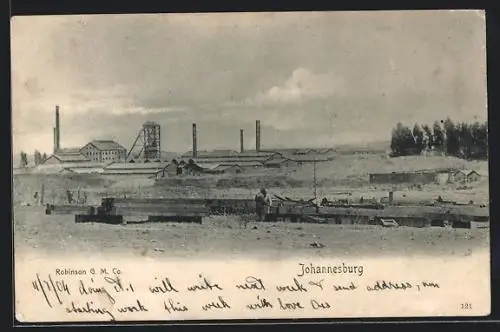 Robinson G. M. Co. Johannesburg
4/7/04 doing it. will write next week & send address, am
starting work this week with love Des
121